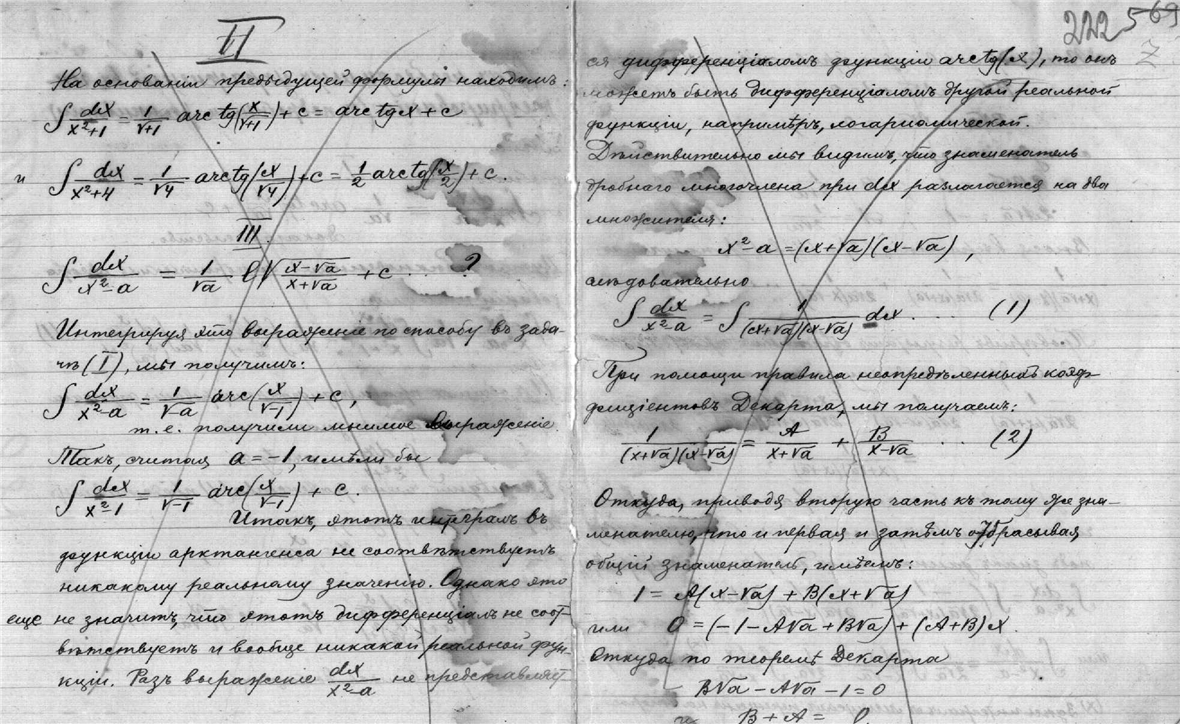 II
На основаніи предыдущей формулы находимъ:
∫ dx/(x²+1) = 1/√+1 arc tg(x/√+1) + c = arc tg x + c
и ∫ dx/(x²+4) = 1/√4 arc tg(x/√4) + c = 1/2 arc tg(x/2) + c.
III.
∫ dx/(x²-a) = 1/√a l √((x-√a)/(x+√a)) + c ?
Интегрируя это выраженіе по способу въ зада-
чѣ (I), мы получимъ:
∫ dx/(x²-a) = 1/√-a arc(x/√-1) + c,
т.е. получили мнимое выраженіе.
Такъ, считая a = -1, имѣли бы
∫ dx/(x²-1) = 1/√-1 arc(x/√-1) + c.
Итакъ, этотъ интегралъ въ
функціи арктангенса не соотвѣтствуетъ
никакому реальному значенію. Однако это
еще не значитъ, что этотъ дифференціалъ не соот-
вѣтствуетъ и вообще никакой реальной фун-
кціи. Разъ выраженіе dx/(x²-a) не представляет-
222 569
7
ся дифференціаломъ функціи arc tg(x), то онъ
можетъ быть дифференціаломъ другой реальной
функціи, напримѣръ, логариѳмической.
Дѣйствительно мы видимъ, что знаменатель
дробнаго многочлена при dx разлагается на два
множителя:
x²-a = (x+√a)(x-√a),
слѣдовательно
∫ dx/(x²-a) = ∫ 1/((x+√a)(x-√a)) dx . . . . (1)
При помощи правила неопредѣленныхъ коэф-
фиціентовъ Декарта, мы получаемъ:
1/((x+√a)(x-√a)) = A/(x+√a) + B/(x-√a) . . . (2)
Откуда, приводя вторую часть къ тому же зна-
менателю, что и первая и затѣмъ отбрасывая
общій знаменатель, имѣемъ:
1 = A(x-√a) + B(x+√a)
или 0 = (-1-A√a+B√a) + (A+B)x.
Откуда по теоремѣ Декарта
B√a - A√a - 1 = 0
и B + A = 0